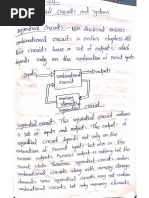 sequential Circuits and Systems
Sequential Circuits: we discussed various
combinational circuits in earlier chapters. All
these circuits have a set of outputs, which
depends only on the combination of present inputs.
Inputs
combinational
circuit
outputs
storage
element
Sequential circuits: This sequential circuit contains
a set of inputs and outputs. The output of
sequential circuit depends not only on the
combination of present inputs but also on the
previous outputs. Previous output is nothing but the
present state. Therefore, sequential circuits contain
combinational circuits along with memory storage
elements. Some sequential circuits may not contain
combinational circuits, but only memory elements.